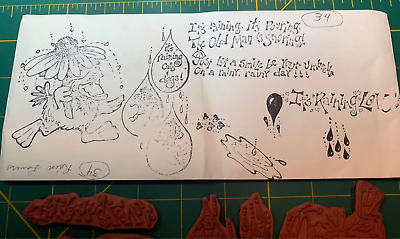 34
It's Raining, it's Pouring,
The Old Man is Snoring!
Just let a Smile be Your Umbrella
On a rainy, rainy day!!!
it's
raining
cats
&
dogs!
It's Raining Love
34